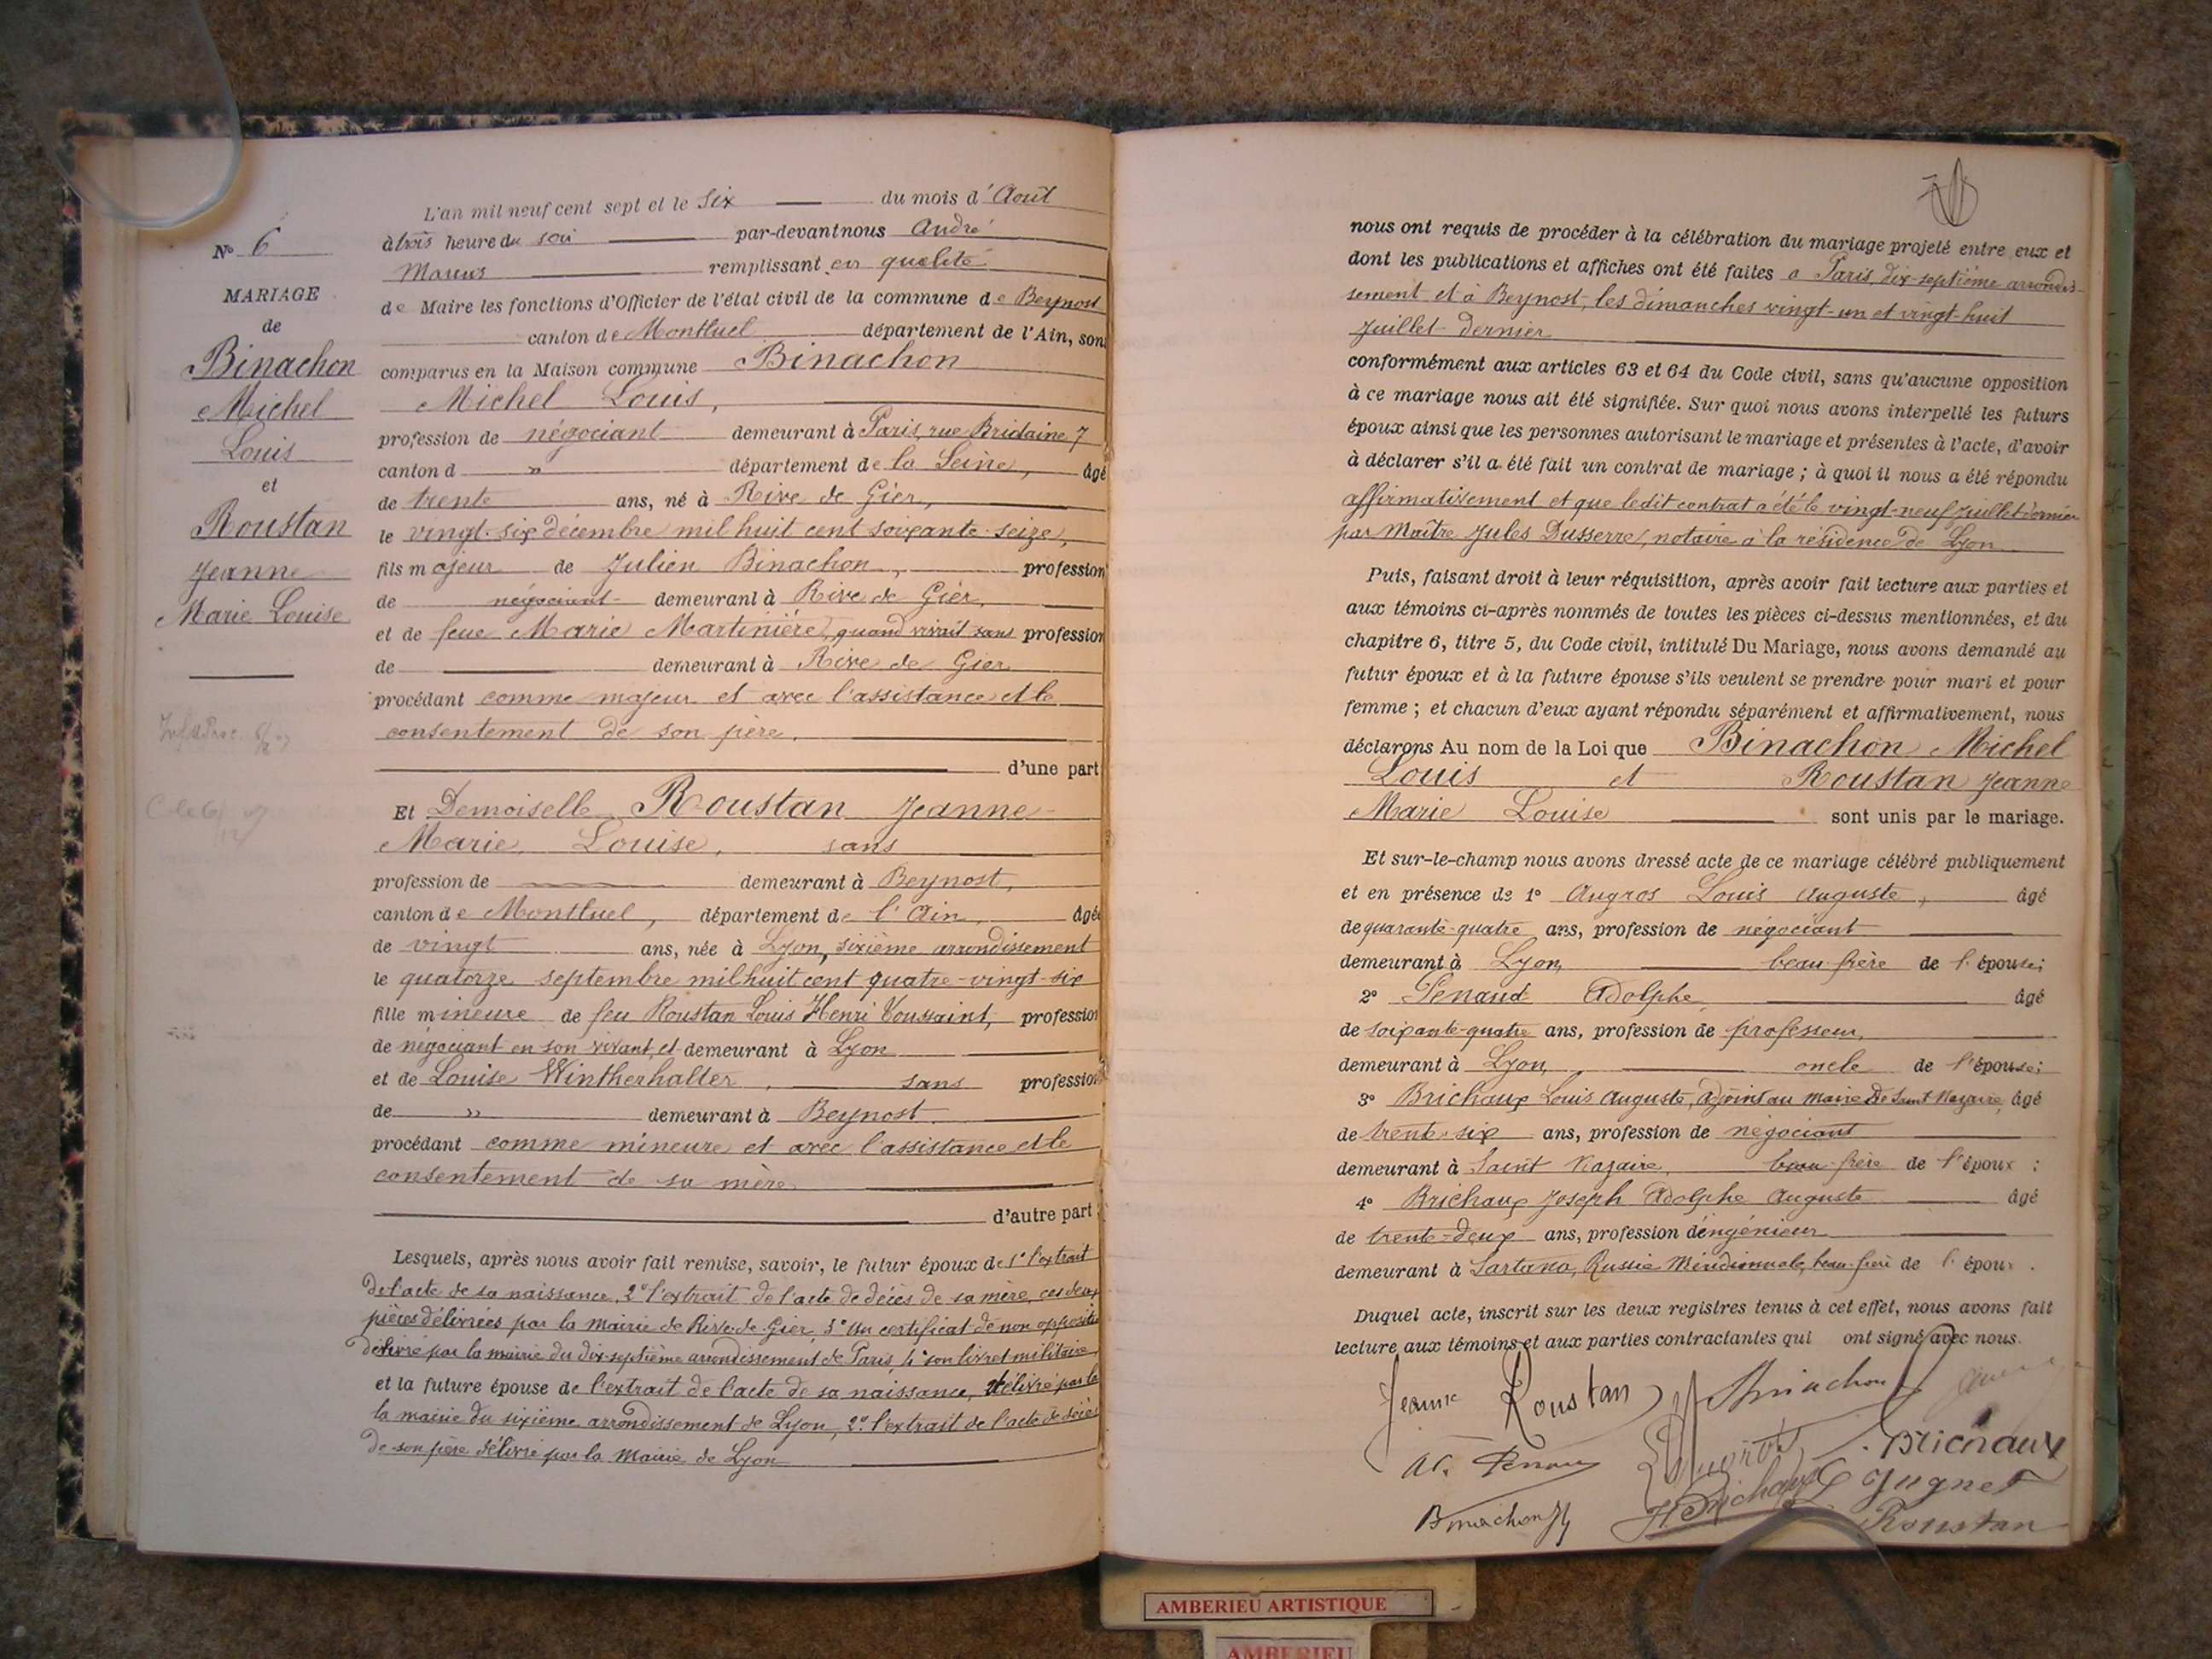 N° 6
MARIAGE
de
Binachon
Michel
Louis
et
Roustan
Jeanne
Marie Louise
L'an mil neuf cent sept et le six du mois d'Août
à trois heure du soir par-devant nous André
Marius remplissant en qualité
de Maire les fonctions d'Officier de l'état civil de la commune de Beynost
canton de Montluel département de l'Ain, son
comparus en la Maison commune Binachon
Michel Louis,
profession de négociant demeurant à Paris, rue Bridaine 7
canton d " département de la Seine, âgé
de trente ans, né à Rive de Gier,
le vingt-six décembre mil huit cent soixante-seize,
fils majeur de Julien Binachon, profession
de négociant demeurant à Rive de Gier,
et de feue Marie Martinière, quand vivait sans profession
de demeurant à Rive de Gier
procédant comme majeur et avec l'assistance et le
consentement de son père.
d'une part
Et Demoiselle Roustan Jeanne
Marie Louise, sans
profession de demeurant à Beynost,
canton de Montluel, département de l'Ain, âgée
de vingt ans, née à Lyon, sixième arrondissement
le quatorze septembre mil huit cent quatre-vingt-six
fille mineure de feu Roustan Louis Henri Toussaint, profession
de négociant en son vivant, et demeurant à Lyon
et de Louise Wintherhalter, sans profession
de " demeurant à Beynost
procédant comme mineure et avec l'assistance et le
consentement de sa mère
d'autre part
Lesquels, après nous avoir fait remise, savoir, le futur époux de 1° l'extrait
de l'acte de sa naissance, 2° l'extrait de l'acte de décès de sa mère, ces deux
pièces délivrées par la mairie de Rive-de-Gier, 3° un certificat de non opposition
délivré par la mairie du dix-septième arrondissement de Paris, 4° son livret militaire
et la future épouse de l'extrait de l'acte de sa naissance, délivré par la
la mairie du sixième arrondissement de Lyon, 2° l'extrait de l'acte de décès
de son père délivré par la Mairie de Lyon
nous ont requis de procéder à la célébration du mariage projeté entre eux et
dont les publications et affiches ont été faites à Paris, dix-septième arrondis-
sement et à Beynost, les dimanches vingt-un et vingt-huit
Juillet dernier
conformément aux articles 63 et 64 du Code civil, sans qu'aucune opposition
à ce mariage nous ait été signifiée. Sur quoi nous avons interpellé les futurs
époux ainsi que les personnes autorisant le mariage et présentes à l'acte, d'avoir
à déclarer s'il a été fait un contrat de mariage ; à quoi il nous a été répondu
affirmativement et que ledit contrat a été le vingt-neuf Juillet dernier
par Maître Jules Dusserre, notaire à la résidence de Lyon
Puis, faisant droit à leur réquisition, après avoir fait lecture aux parties et
aux témoins ci-après nommés de toutes les pièces ci-dessus mentionnées, et du
chapitre 6, titre 5, du Code civil, intitulé Du Mariage, nous avons demandé au
futur époux et à la future épouse s'ils veulent se prendre pour mari et pour
femme ; et chacun d'eux ayant répondu séparément et affirmativement, nous
déclarons Au nom de la Loi que Binachon Michel
Louis et Roustan Jeanne
Marie Louise sont unis par le mariage.
Et sur-le-champ nous avons dressé acte de ce mariage célébré publiquement
et en présence de 1° Augros Louis Auguste, âgé
de quarante-quatre ans, profession de négociant
demeurant à Lyon, beau-frère de l'épouse;
2° Penaud Adolphe, âgé
de soixante-quatre ans, profession de professeur,
demeurant à Lyon, oncle de l'épouse;
3° Brichaux Louis Auguste, Adjoint au maire de Saint Nazaire, âgé
de trente-six ans, profession de négociant
demeurant à Saint Nazaire, beau-frère de l'époux ;
4° Brichaux Joseph Adolphe Auguste âgé
de trente-deux ans, profession d'ingénieur
demeurant à Sartana, Russie Méridionale, beau-frère de l'époux.
Duquel acte, inscrit sur les deux registres tenus à cet effet, nous avons fait
lecture aux témoins et aux parties contractantes qui ont signé avec nous.
Jeanne Roustan Binachon
Ad. Penaud Augros Brichaux
Binachon H. Brichaux Gugnet
Roustan
AMBERIEU ARTISTIQUE
AMBERIEU